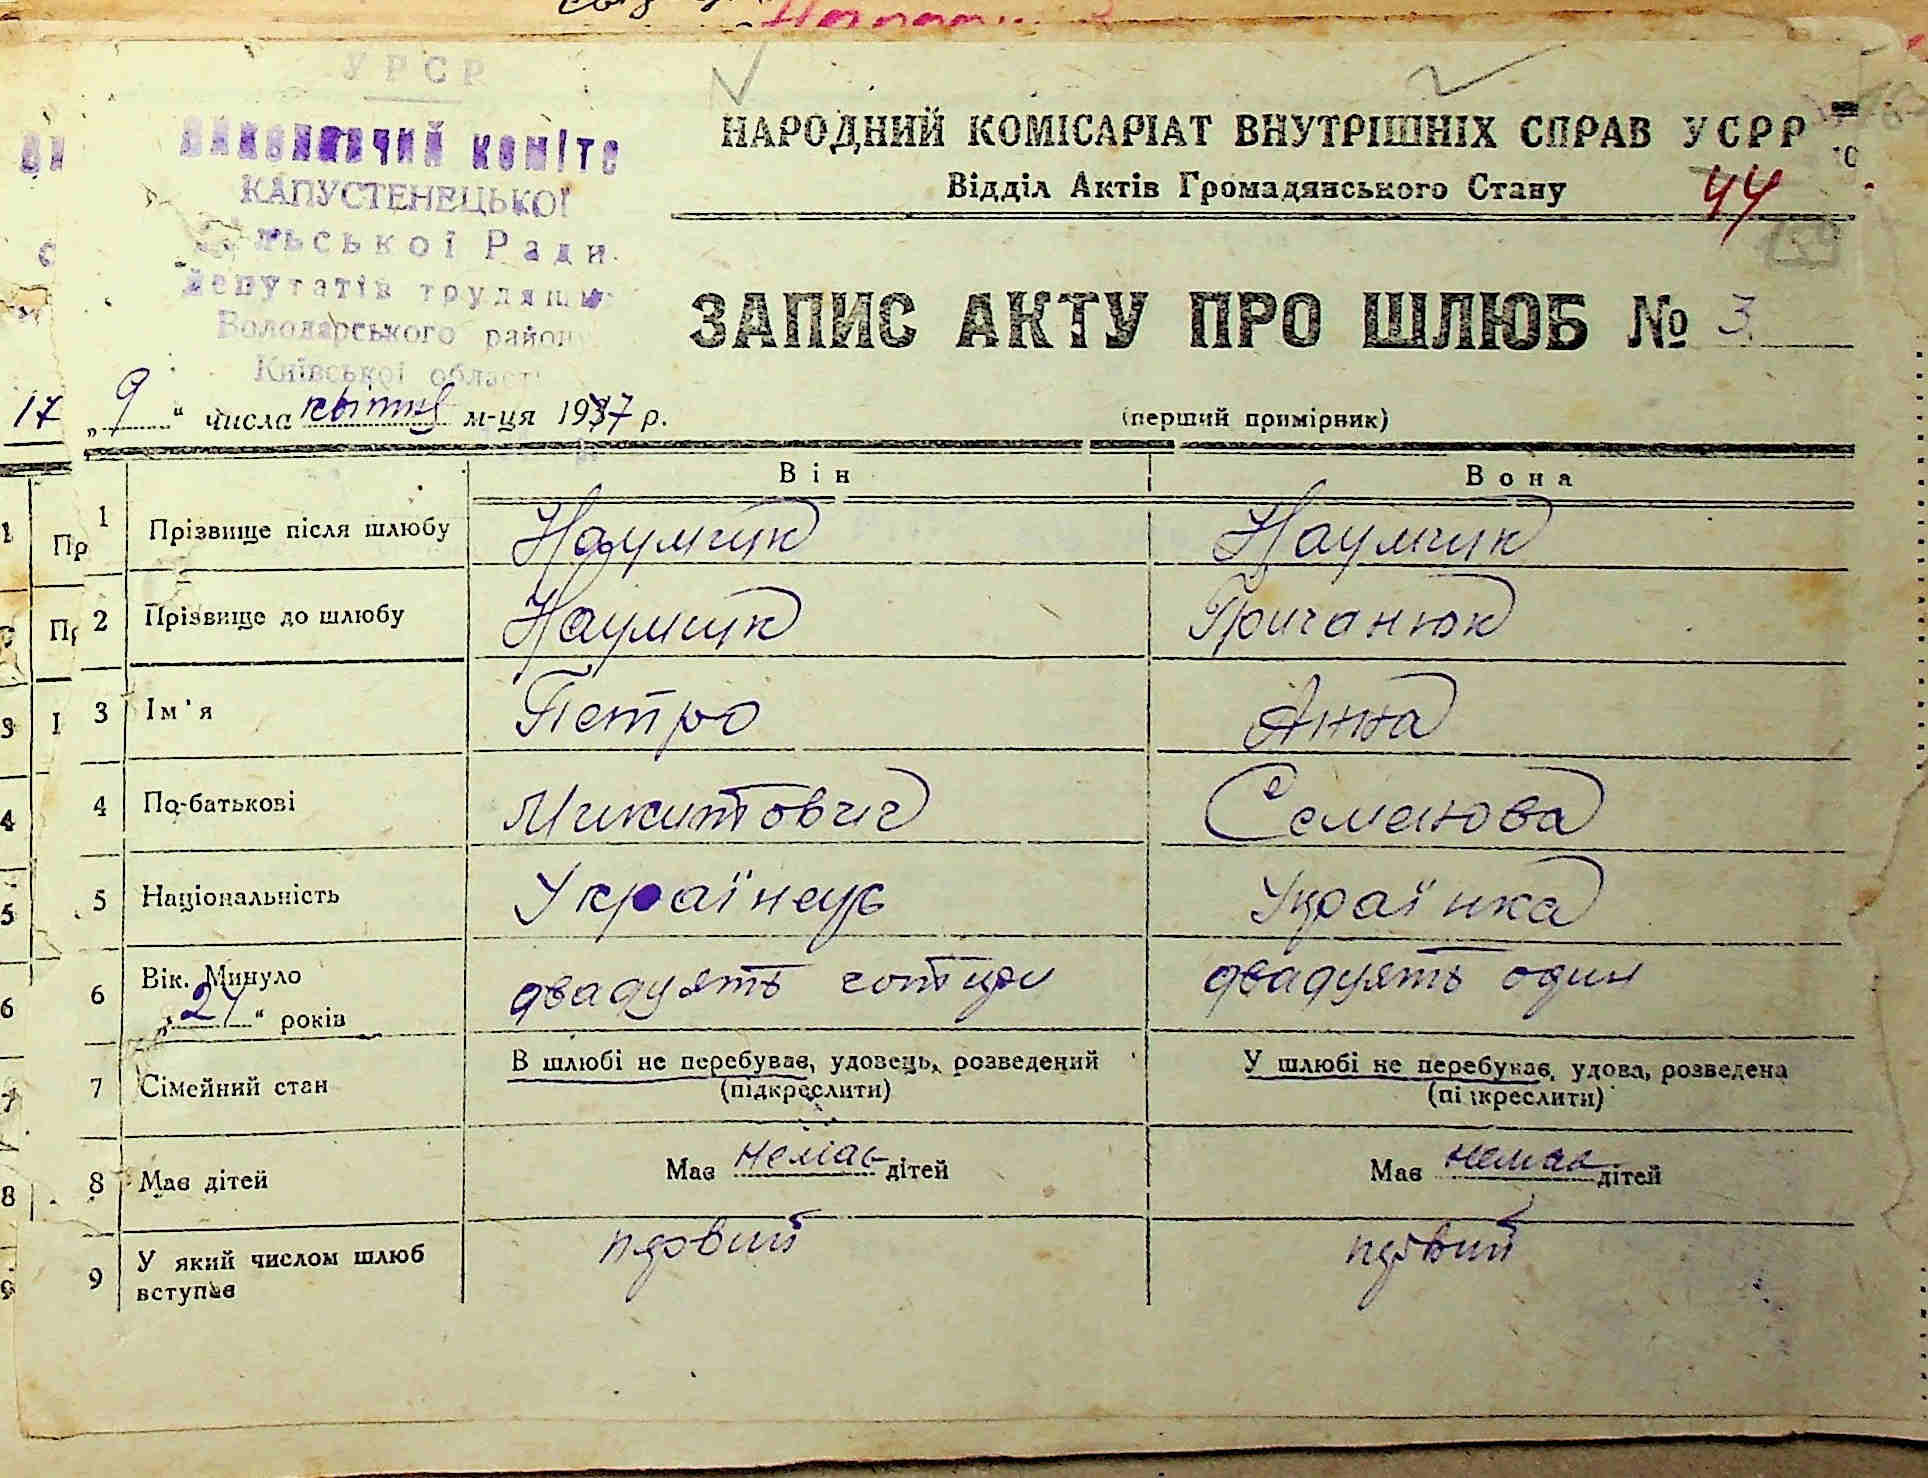 УРСР
виконавчий коміте
КАПУСТЕНЕЦЬКОЇ
льської Ради
депутатів трудящи
Володарського район
Київської област
НАРОДНИЙ КОМІСАРІАТ ВНУТРІШНІХ СПРАВ УСРР
Відділ Актів Громадянського Стану
44
ЗАПИС АКТУ ПРО ШЛЮБ № 3
17 „9“ числа квітня м-ця 1937 р.
(перший примірник)
Він Вона
1 Прізвище після шлюбу Наумчук Наумчук
2 Прізвище до шлюбу Наумчук Гричанюк
3 Ім'я Петро Анна
4 По-батькові Микитович Семенова
5 Національність Українець Українка
6 Вік. Минуло двадцять чотири двадцять один
„24“ років
7 Сімейний стан В шлюбі не перебував, удовець, розведений У шлюбі не перебував, удова, розведена
(підкреслити) (підкреслити)
8 Має дітей Має немає дітей Має немає дітей
9 У який числом шлюб первий первий
вступає